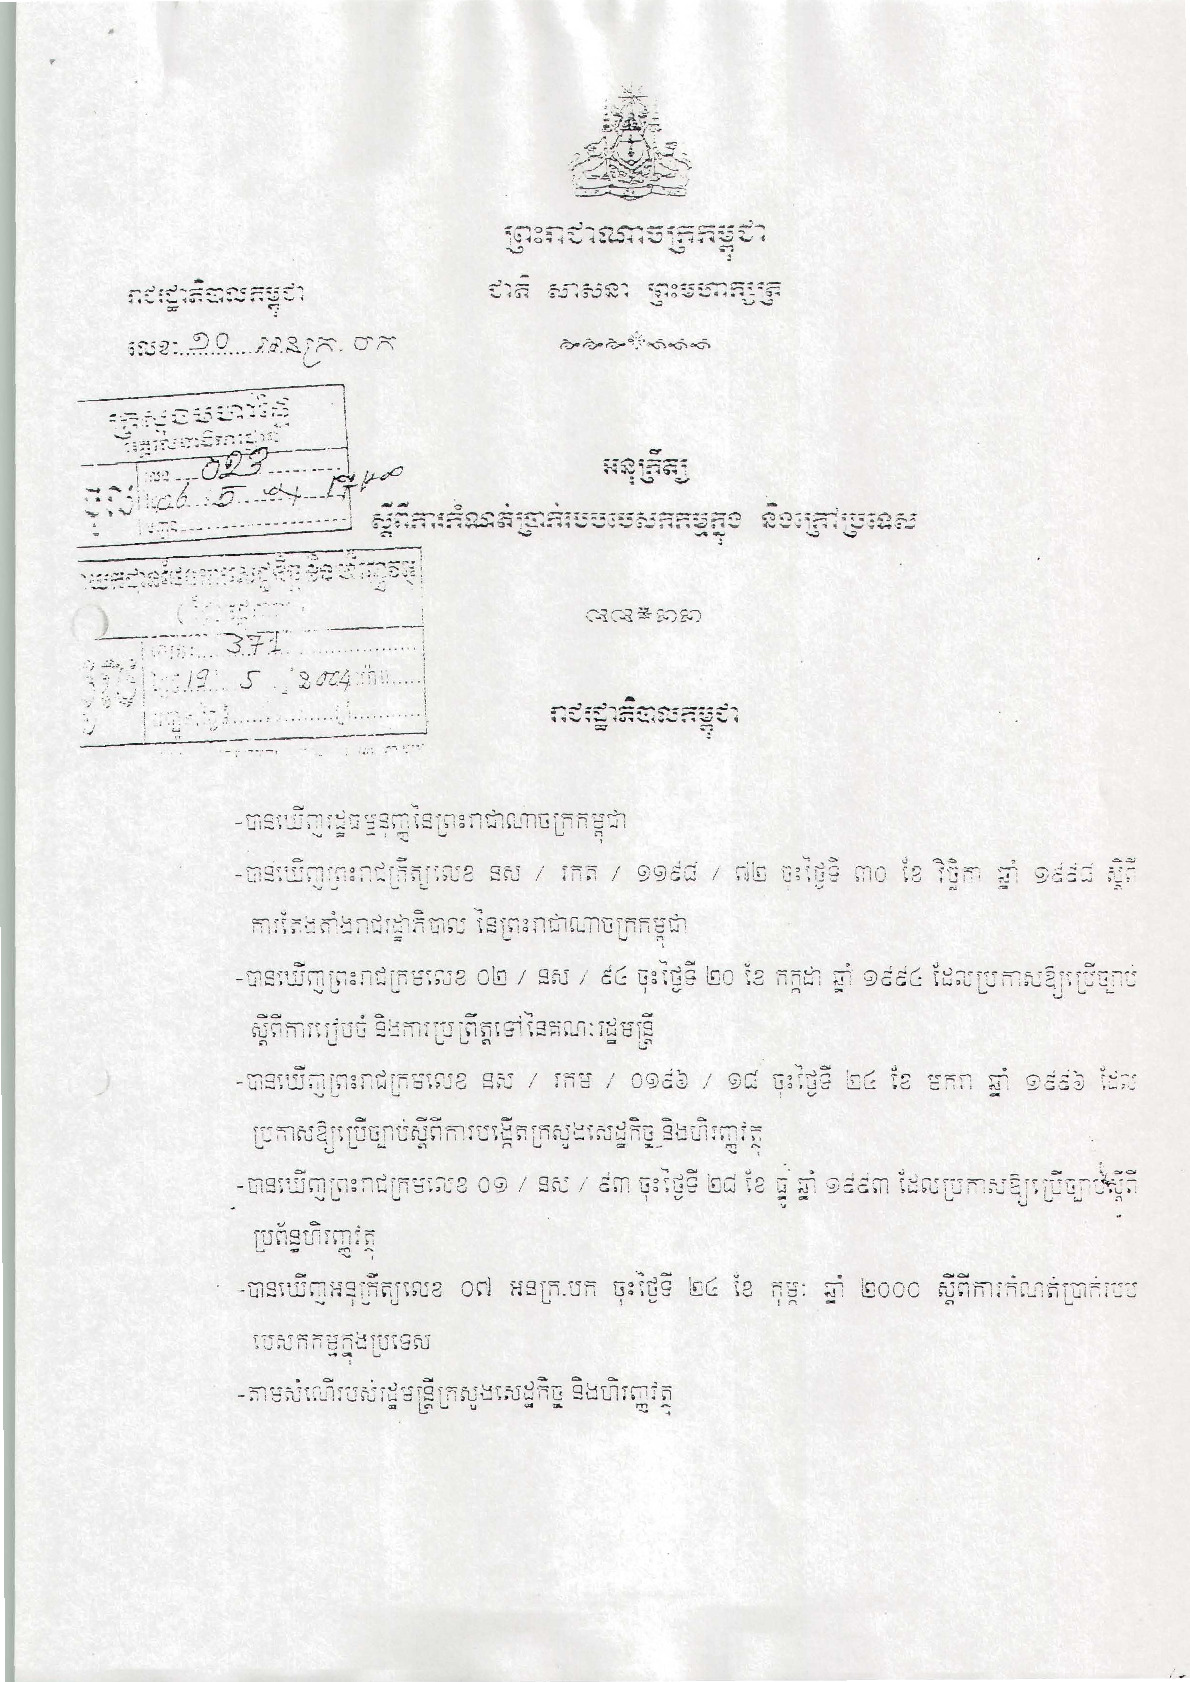 ព្រះរាជាណាចក្រកម្ពុជា
ជាតិ សាសនា ព្រះមហាក្សត្រ
រាជរដ្ឋាភិបាលកម្ពុជា
លេខៈ ១០ អនក្រ. បក
ក្រសួងមហាផ្ទៃ
លេខ 023
ចូល
អនុក្រឹត្យ
ស្តីពីការកំណត់ប្រាក់របបបេសកកម្មក្នុង និងក្រៅប្រទេស
371
រាជរដ្ឋាភិបាលកម្ពុជា
-បានឃើញរដ្ឋធម្មនុញ្ញនៃព្រះរាជាណាចក្រកម្ពុជា
-បានឃើញព្រះរាជក្រឹត្យលេខ នស / រកត / ១១៩៨ / ៧២ ចុះថ្ងៃទី ៣០ ខែ វិច្ឆិកា ឆ្នាំ ១៩៩៨ ស្តីពី
ការតែងតាំងរាជរដ្ឋាភិបាល នៃព្រះរាជាណាចក្រកម្ពុជា
-បានឃើញព្រះរាជក្រមលេខ ០២ / នស / ៩៤ ចុះថ្ងៃទី ២០ ខែ កក្កដា ឆ្នាំ ១៩៩៤ ដែលប្រកាសឱ្យប្រើច្បាប់
ស្តីពីការរៀបចំ និងការប្រព្រឹត្តទៅនៃគណៈរដ្ឋមន្ត្រី
-បានឃើញព្រះរាជក្រមលេខ នស / រកម / ០១៩៦ / ១៨ ចុះថ្ងៃទី ២៤ ខែ មករា ឆ្នាំ ១៩៩៦ ដែល
ប្រកាសឱ្យប្រើច្បាប់ស្តីពីការបង្កើតក្រសួងសេដ្ឋកិច្ច និងហិរញ្ញវត្ថុ
-បានឃើញព្រះរាជក្រមលេខ ០១ / នស / ៩៣ ចុះថ្ងៃទី ២៨ ខែ ធ្នូ ឆ្នាំ ១៩៩៣ ដែលប្រកាសឱ្យប្រើច្បាប់ស្តីពី
ប្រព័ន្ធហិរញ្ញវត្ថុ
-បានឃើញអនុក្រឹត្យលេខ ០៧ អនក្រ.បក ចុះថ្ងៃទី ២៤ ខែ កុម្ភៈ ឆ្នាំ ២០០០ ស្តីពីការកំណត់ប្រាក់របប
បេសកកម្មក្នុងប្រទេស
-តាមសំណើរបស់រដ្ឋមន្ត្រីក្រសួងសេដ្ឋកិច្ច និងហិរញ្ញវត្ថុ